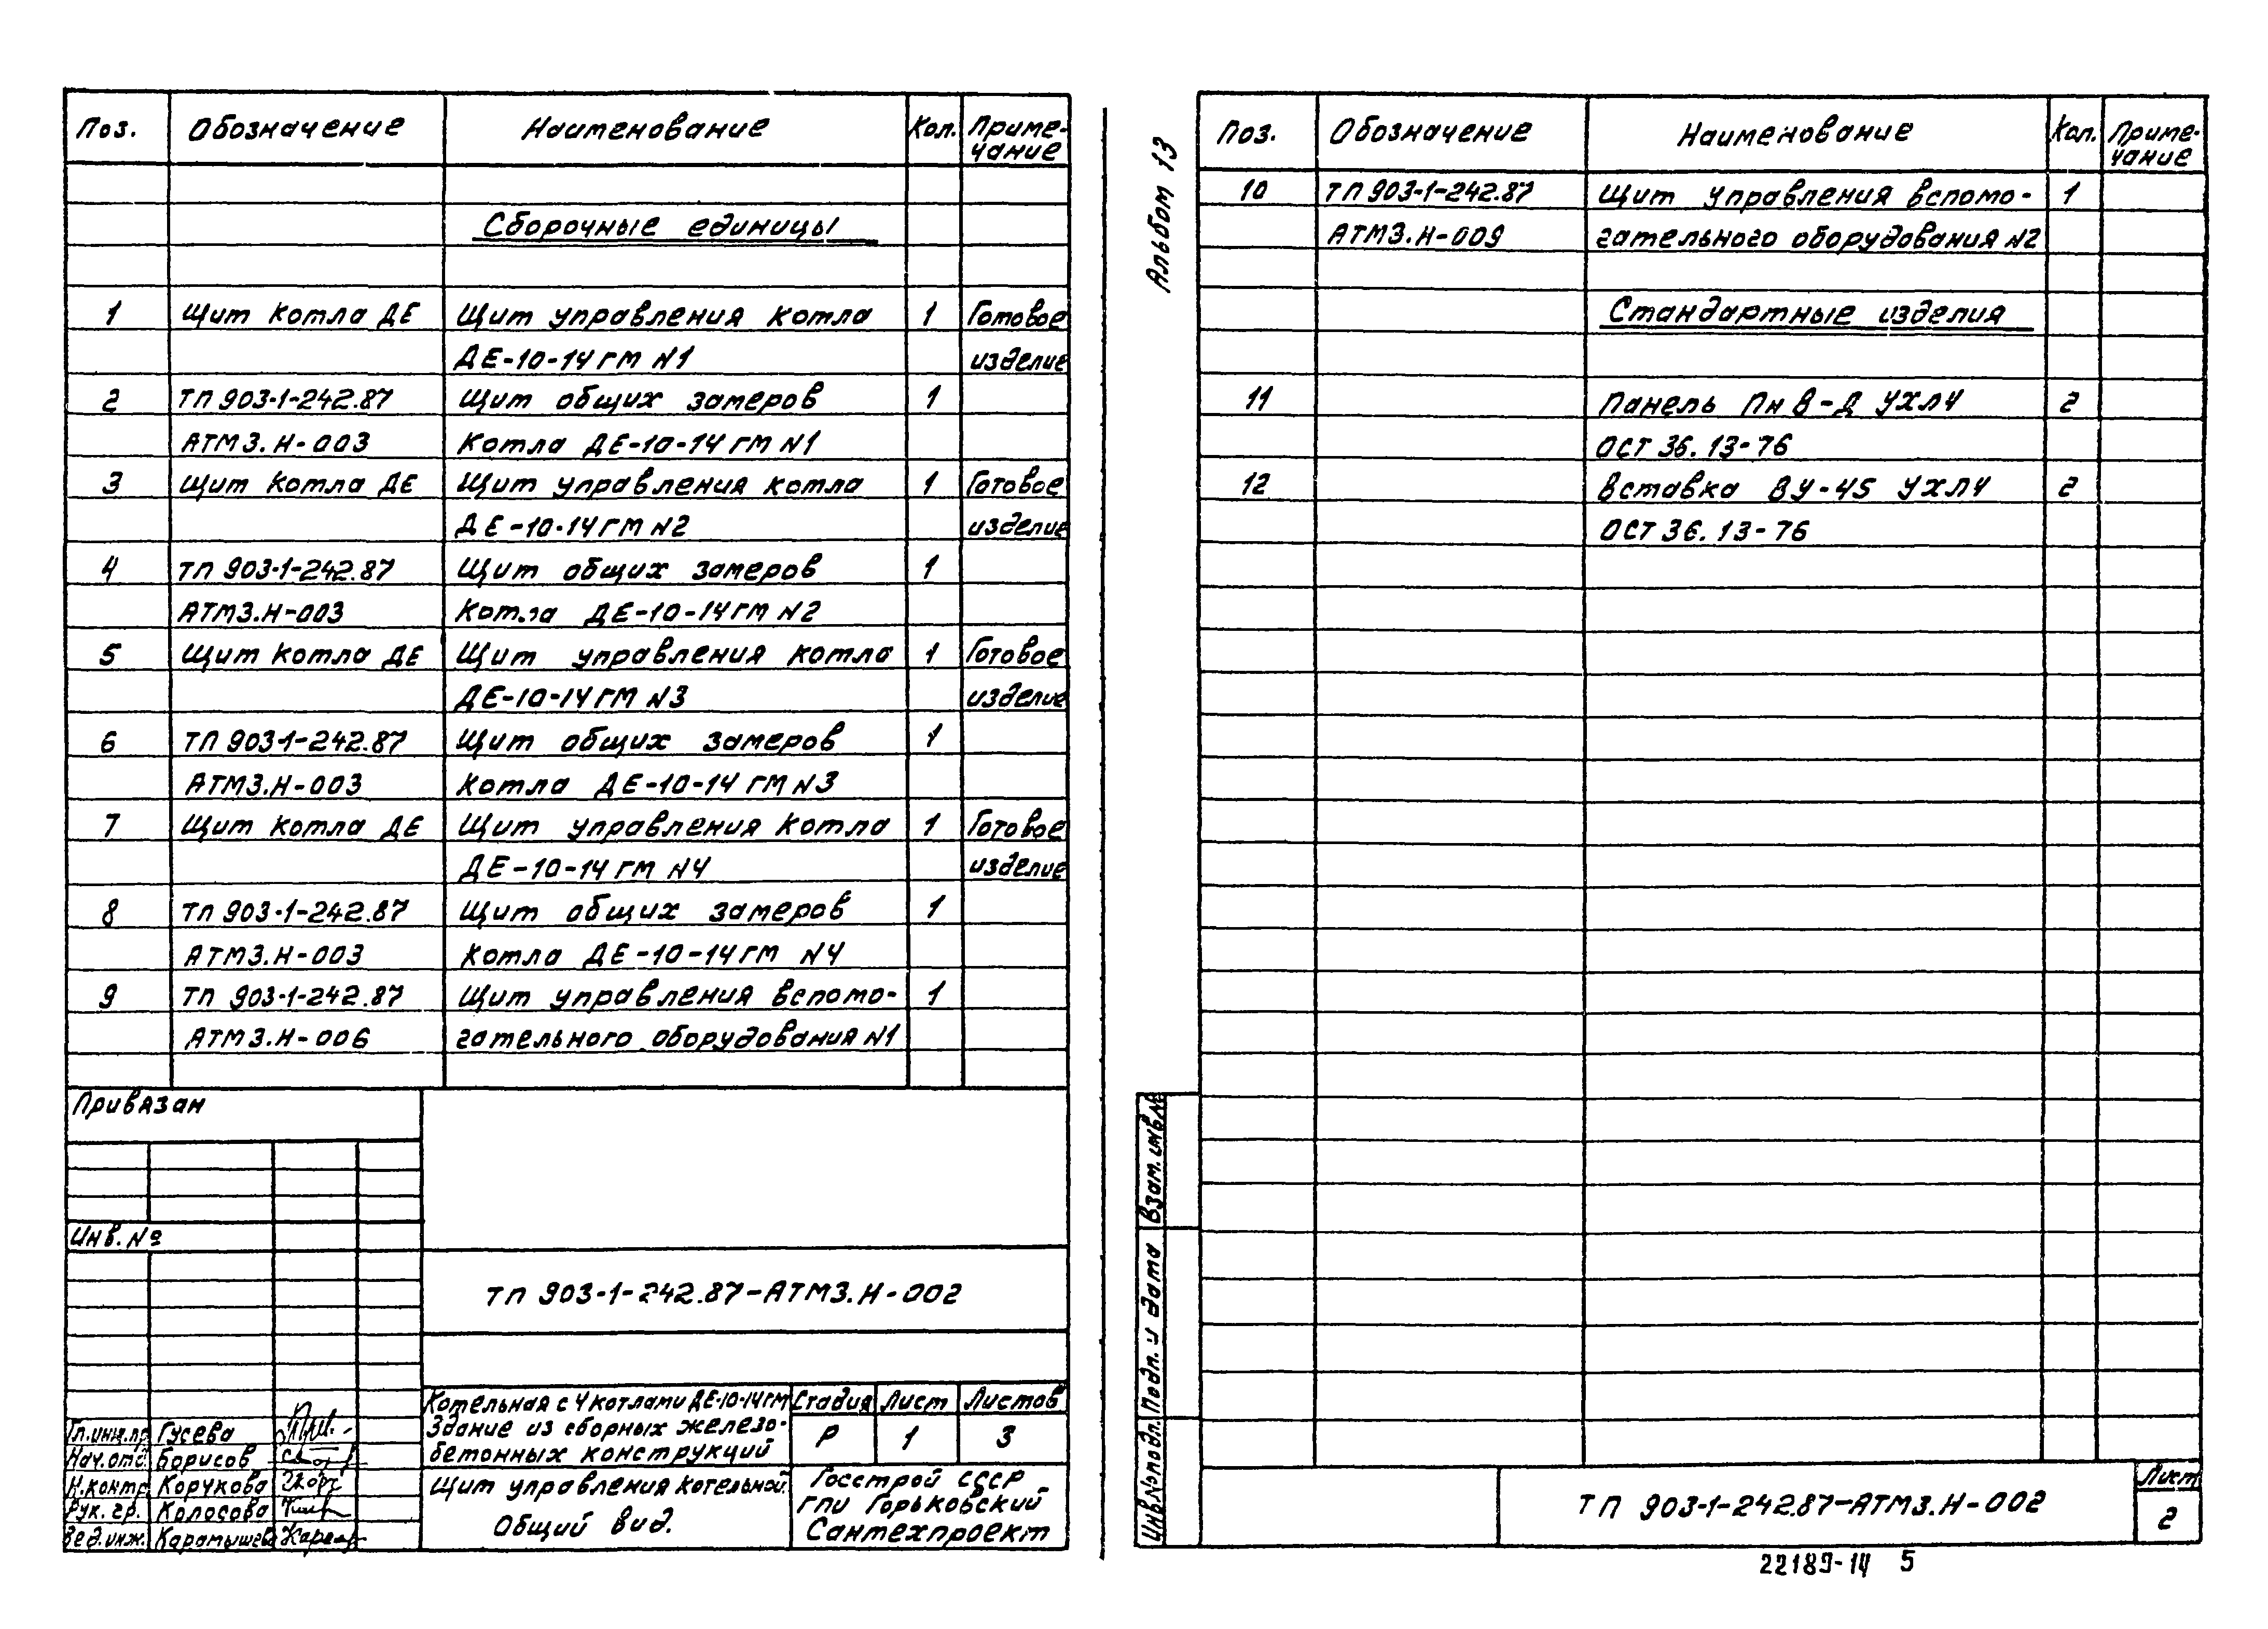 Поз. Обозначение Наименование Кол. Приме-
чание
Сборочные единицы
1 Щит котла ДЕ Щит управления котла 1 Готовое
ДЕ-10-14 ГМ N1 изделие
2 ТП 903-1-242.87 Щит общих замеров 1
АТМ3.Н-003 Котла ДЕ-10-14 ГМ N1
3 Щит котла ДЕ Щит управления котла 1 Готовое
ДЕ-10-14 ГМ N2 изделие
4 ТП 903-1-242.87 Щит общих замеров 1
АТМ3.Н-003 Котла ДЕ-10-14 ГМ N2
5 Щит котла ДЕ Щит управления котла 1 Готовое
ДЕ-10-14 ГМ N3 изделие
6 ТП 903-1-242.87 Щит общих замеров 1
АТМ3.Н-003 Котла ДЕ-10-14 ГМ N3
7 Щит котла ДЕ Щит управления котла 1 Готовое
ДЕ-10-14 ГМ N4 изделие
8 ТП 903-1-242.87 Щит общих замеров 1
АТМ3.Н-003 Котла ДЕ-10-14 ГМ N4
9 ТП 903-1-242.87 Щит управления вспомо-
1
АТМ3.Н-006 гательного оборудования N1
Привязан
Инв. №
ТП 903-1-242.87-АТМ3.Н-002
Котельная с 4 котлами ДЕ-10-14 ГМ
Здание из сборных железо-
бетонных конструкций
Стадия Лист Листов
Р 1 3
Гл.инж.пр. Гусева
Нач.отд. Борисов
Н.контр. Корукова
Рук. гр. Колосова
Вед.инж. Карамышева
Щит управления котельной.
Общий вид.
Госстрой СССР
ГПИ Горьковский
Сантехпроект
Альбом 13
Поз. Обозначение Наименование Кол. Приме-
чание
10 ТП 903-1-242.87 Щит управления вспомо- 1
АТМ3.Н-009 гательного оборудования N2
Стандартные изделия
11 Панель ПнВ-Д УХЛ4 2
ОСТ 36.13-76
12 Вставка ВУ-45 УХЛ4 2
ОСТ 36.13-76
Взам. инв. №
Подп. и дата
Инв № подл.
ТП 903-1-242.87-АТМ3.Н-002
Лист
2
22189-14 5